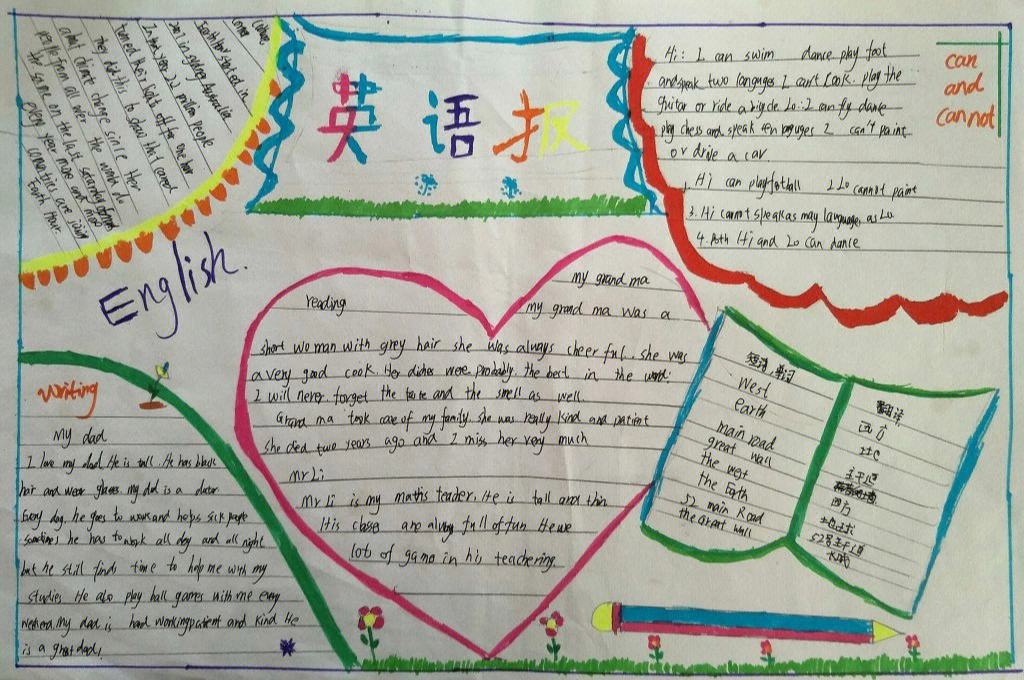 英语报
English.
corner
Earth Hour started in
2007 in sydney Australia
In that year 2.2 million people
turned their light off for one hour
They did this to show that cared
about climate change since
people from all over the world do
the same on the last saturday
every year more and more
countries are
Earth Hour.
can
and
cannot
Hi: I can swim dance play foot
and speak two languages I can't Cook. play the
guitar or ride a bigcle Lo: I can fly dance
play chess and speak ten 2 can't paint
or drive a car
1. Hi can play football 2 Lo cannot paint
3. Hi cannot speak as may languages as Lo
4. Both Hi and Lo can dance
reading
my grand ma
my grand ma was a
short wo man with grey hair she was always cheer ful. she was
a very good cook. Her dishes were probably. the best in the world.
I will never forget the taste and the smell as well
Grand ma took care of my family. she was really kind and patient
she died two years ago and I miss her very much
mr Li
Mr Li is my maths teacher. He is tall and thin
His classes are always full of fun He we
lots of gama in his teachering
writing
My dad
I love my dad. He is tall. He has black
hair and wear glasses. my dad is a doctor
Every day. he goes to work and helps sick people
sometimes he has to work all day and all night
but he still finds time to help me with my
studies He also play ball games with me every
weekend. my dad is hard working patient and kind He
is a great dad!
短语 单词
West
earth
main road
great wall
the west
the Earth
52 main Road
the Great wall
翻译
西方
主干道
西方
地球
52号主干道
长城